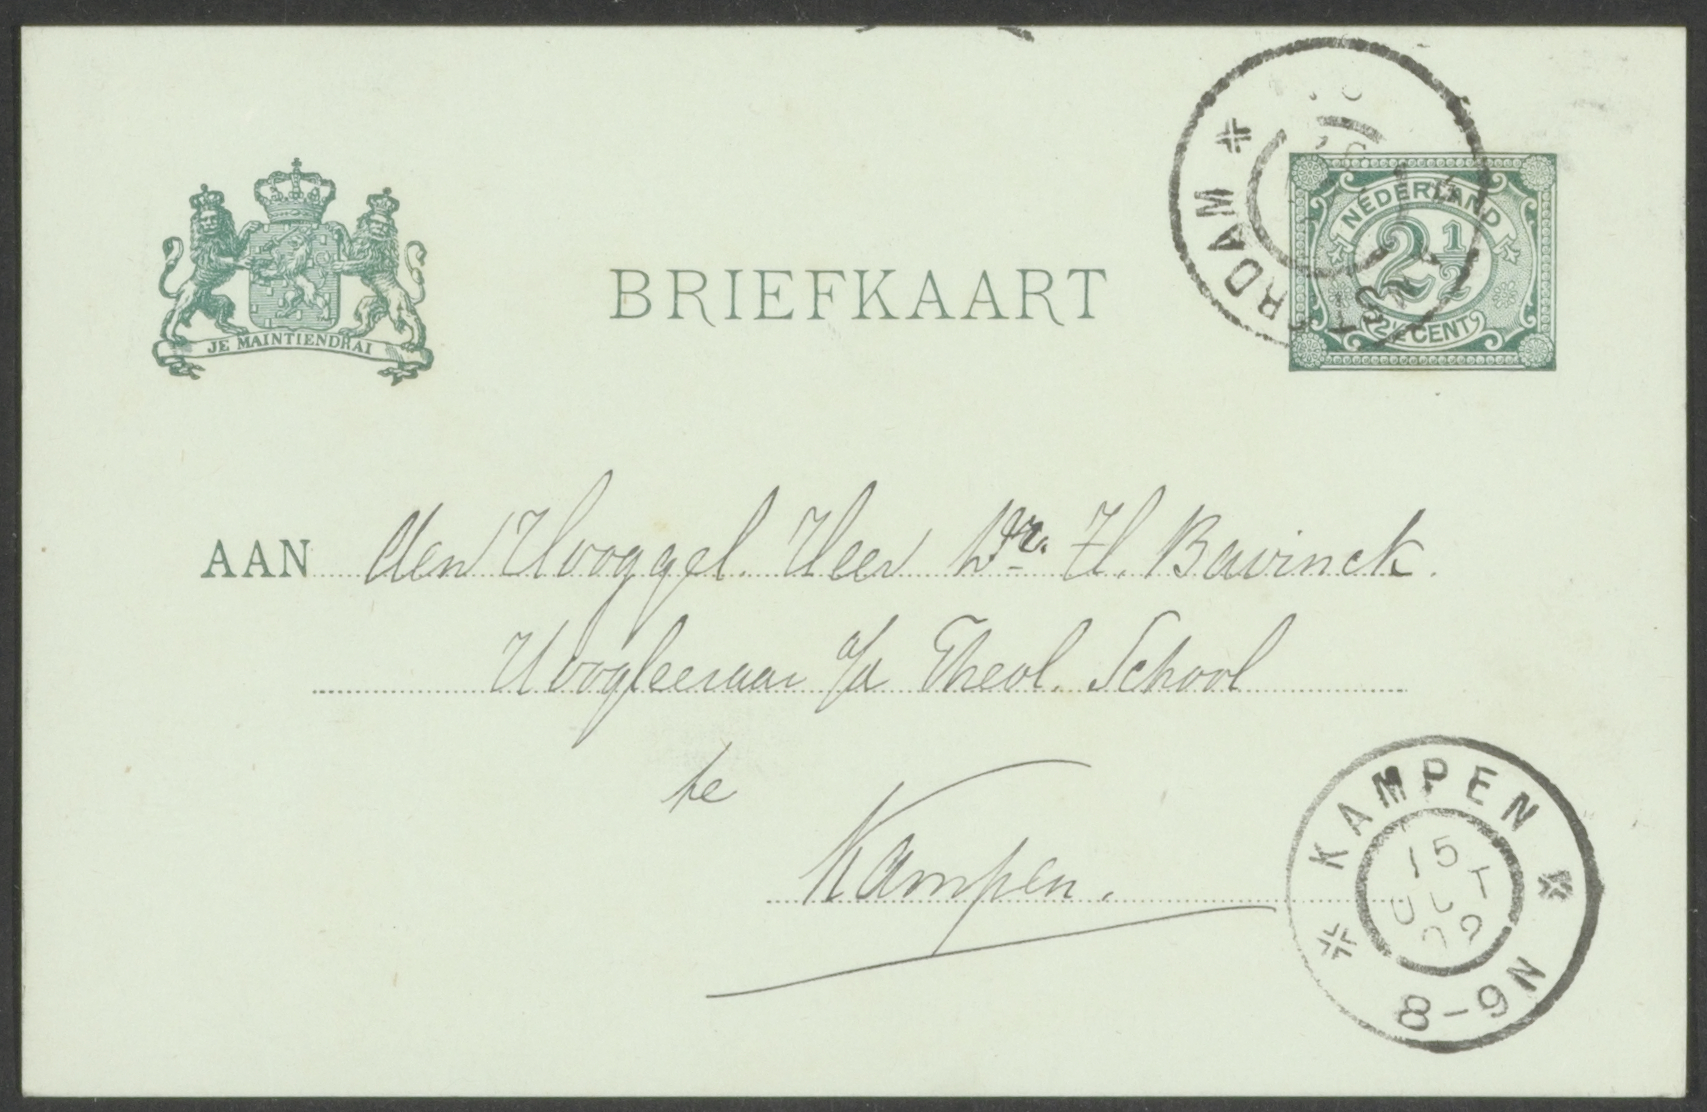 BRIEFKAART
JE MAINTIENDRAI
NEDERLAND
2½
2½ CENT
RDAM
AAN den Hooggel. Heer Dr. H. Bavinck.
Hoogleeraar a/d Theol. School
te
Kampen.
KAMPEN
15
OCT
02
8-9N